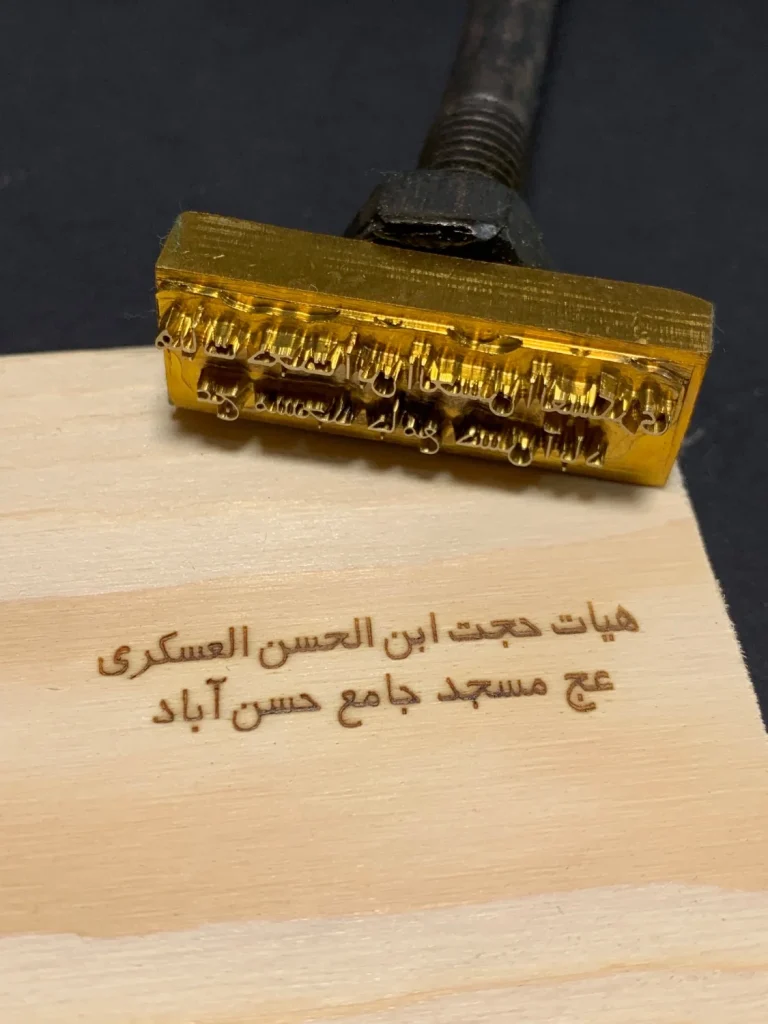 هیات حجت ابن الحسن العسکری
عج مسجد جامع حسن آباد